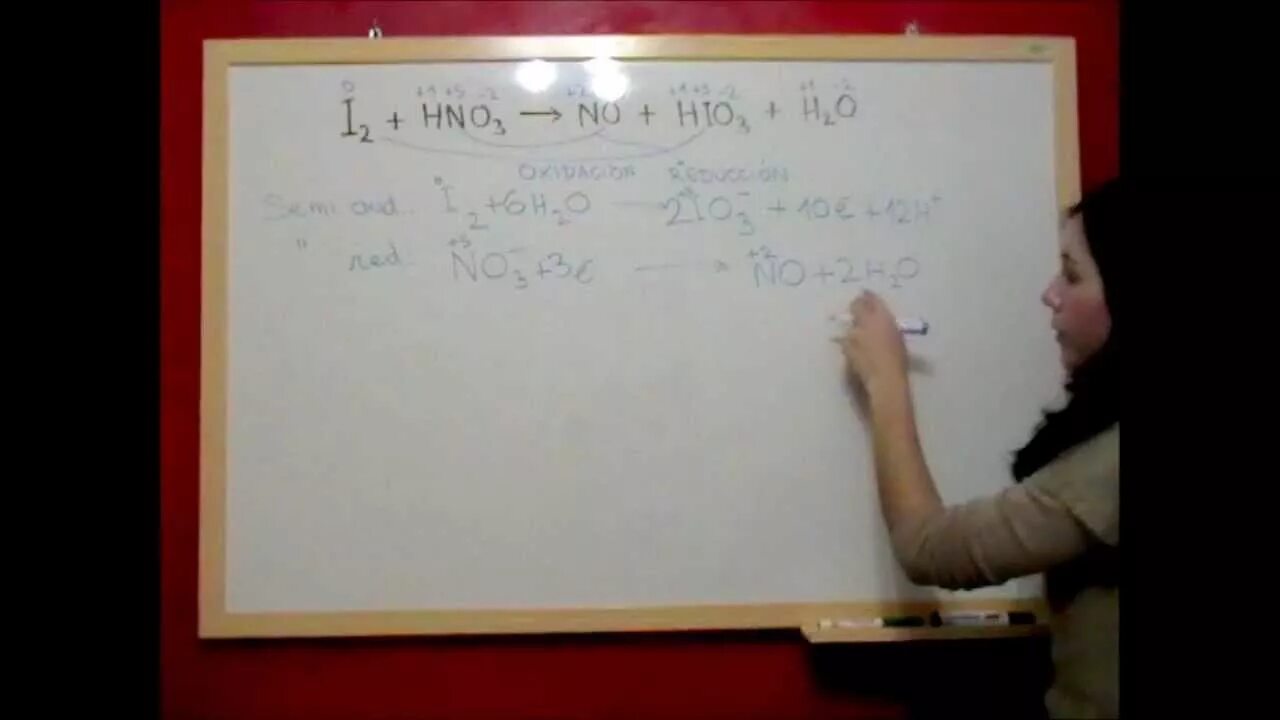 0 +1 +5 -2 +2 +1 +5 -2 +1 -2
I₂ + HNO₃ → NO + HIO₃ + H₂O
OXIDACIÓN REDUCCIÓN
Semi oxid.: I₂ + 6H₂O → 2IO₃⁻ + 10e + 12H⁺
" red: +5 +2
NO₃⁻ + 3e → NO + 2H₂O